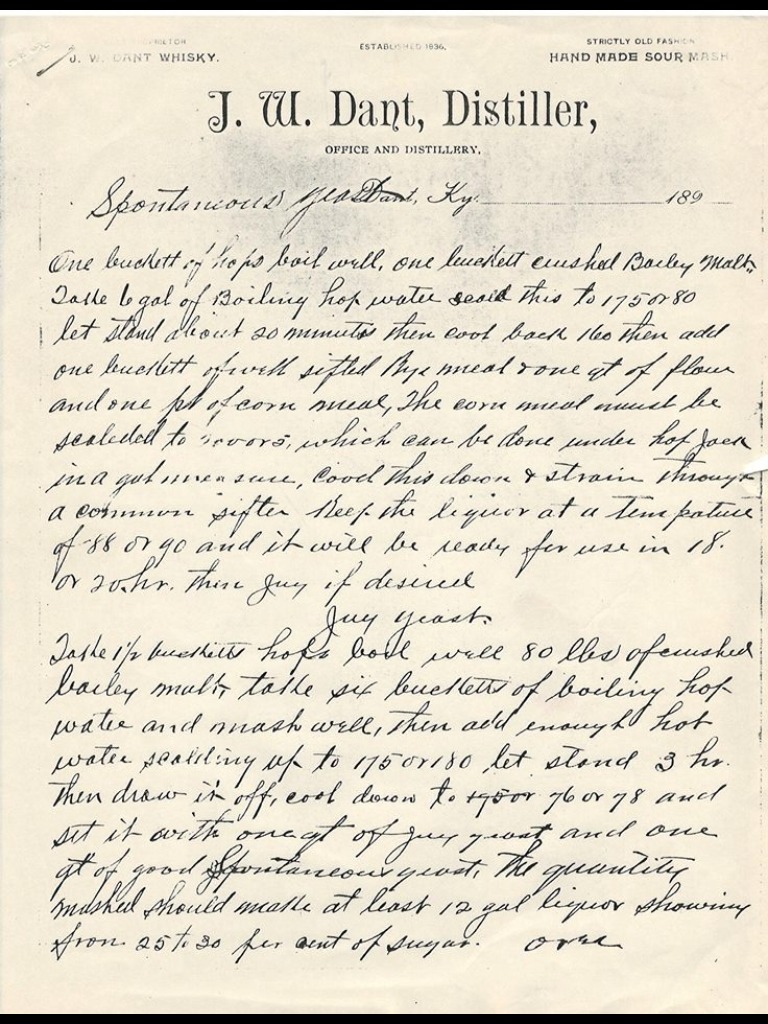 PROPRIETOR
J. W. DANT WHISKY.
ESTABLISHED 1836.
STRICTLY OLD FASHION
HAND MADE SOUR MASH
J. W. Dant, Distiller,
OFFICE AND DISTILLERY,
Spontaneous yeast Dant, Ky. 189
One buckett of hops boil well, one buckett crushed Barley Malt,
Take 6 gal of Boiling hop water scald this to 175 or 80
let stand about 20 minutes then cool back 160 then add
one buckett of well sifted Rye meal & one qt of flour
and one pt of corn meal, The corn meal must be
scaleded to which can be done under hop Jack
in a gal measure, Cool this down & strain through
a common sifter Keep the liquor at a tempature
of 88 or 90 and it will be ready for use in 18.
or 20 hr. then Jug if desired
Jug yeast.
Take 1/2 bucketts hops boil well 80 lbs of crushed
barley malt, take six bucketts of boiling hop
water and mash well, then add enough hot
water scalding up to 175 or 180 let stand 3 hr.
then draw it off, cool down to 76 or 78 and
set it with one qt of Jug yeast and one
qt of good Spontaneous yeast, The quantity
mashed should make at least 12 gal liquor showing
from 25 to 30 per cent of sugar. over